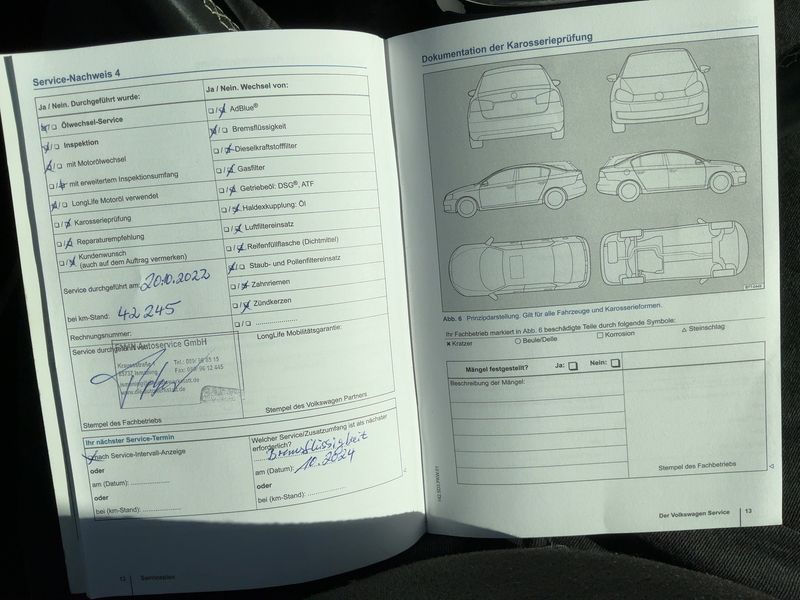 Service-Nachweis 4
Ja / Nein. Durchgeführt wurde:
Ölwechsel-Service
Inspektion
mit Motorölwechsel
mit erweitertem Inspektionsumfang
LongLife Motoröl verwendet
Karosserieprüfung
Reparaturempfehlung
Kundenwunsch
(auch auf dem Auftrag vermerken)
Service durchgeführt am: 20.10.2022
bei km-Stand: 42 245
Rechnungsnummer:
Service durchgeführt
Autoservice GmbH
Tel.: 089/
Fax: 089/ 96 12 445
Stempel des Fachbetriebs
Ja / Nein. Wechsel von:
AdBlue®
Bremsflüssigkeit
Dieselkraftstofffilter
Gasfilter
Getriebeöl: DSG®, ATF
Haldexkupplung: Öl
Luftfiltereinsatz
Reifenfüllflasche (Dichtmittel)
Staub- und Pollenfiltereinsatz
Zahnriemen
Zündkerzen
LongLife Mobilitätsgarantie:
Stempel des Volkswagen Partners
Ihr nächster Service-Termin
nach Service-Intervall-Anzeige
oder
am (Datum):
oder
bei (km-Stand):
Welcher Service/Zusatzumfang ist als nächster
erforderlich?
Bremsflüssigkeit
am (Datum): 10.2024
oder
bei (km-Stand):
12 Serviceplan
Dokumentation der Karosserieprüfung
Abb. 6 Prinzipdarstellung. Gilt für alle Fahrzeuge und Karosserieformen.
Ihr Fachbetrieb markiert in Abb. 6 beschädigte Teile durch folgende Symbole:
Kratzer Beule/Delle Korrosion Steinschlag
Mängel festgestellt? Ja: Nein:
Beschreibung der Mängel:
Stempel des Fachbetriebs
Der Volkswagen Service 13